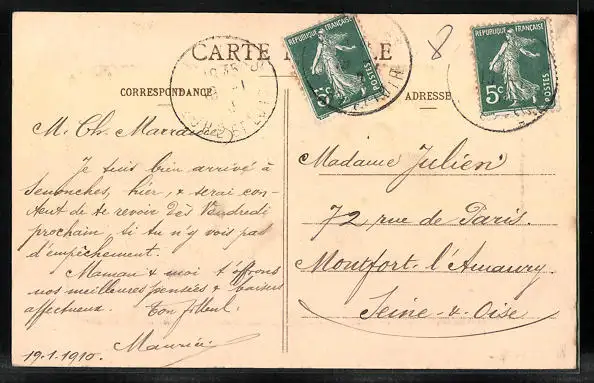 CARTE
CORRESPONDANCE
ADRESSE
REPUBLIQUE FRANÇAISE
5c POSTES
REPUBLIQUE FRANÇAISE
5c POSTES
8
M. Ch. Marraine
Je suis bien arrivé à
Senonches, hier, & serai con-
tent de te revoir dès Vendredi
prochain, si tu n'y vois pas
d'empêchement.
Maman & moi t'offrons
nos meilleures pensées & baisers
affectueux. Ton filleul.
Maurice
19.1.1910.
Madame Julien
72 rue de Paris.
Montfort-l'Amaury.
Seine-&-Oise